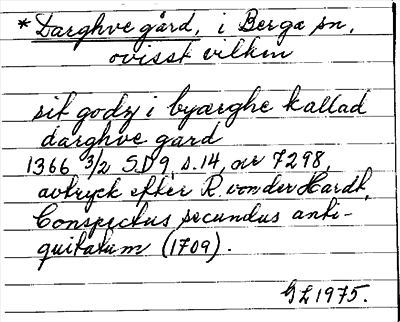 * Darghve gård, i Berga sn,
ovisst vilken
sit godz i byærghe kallad
darghve gard
1366 3/2 SD9, s.14, nr 7298,
avtryck efter R. von der Hardt,
Conspectus secundus anti-
quitatum (1709).
GL 1975.